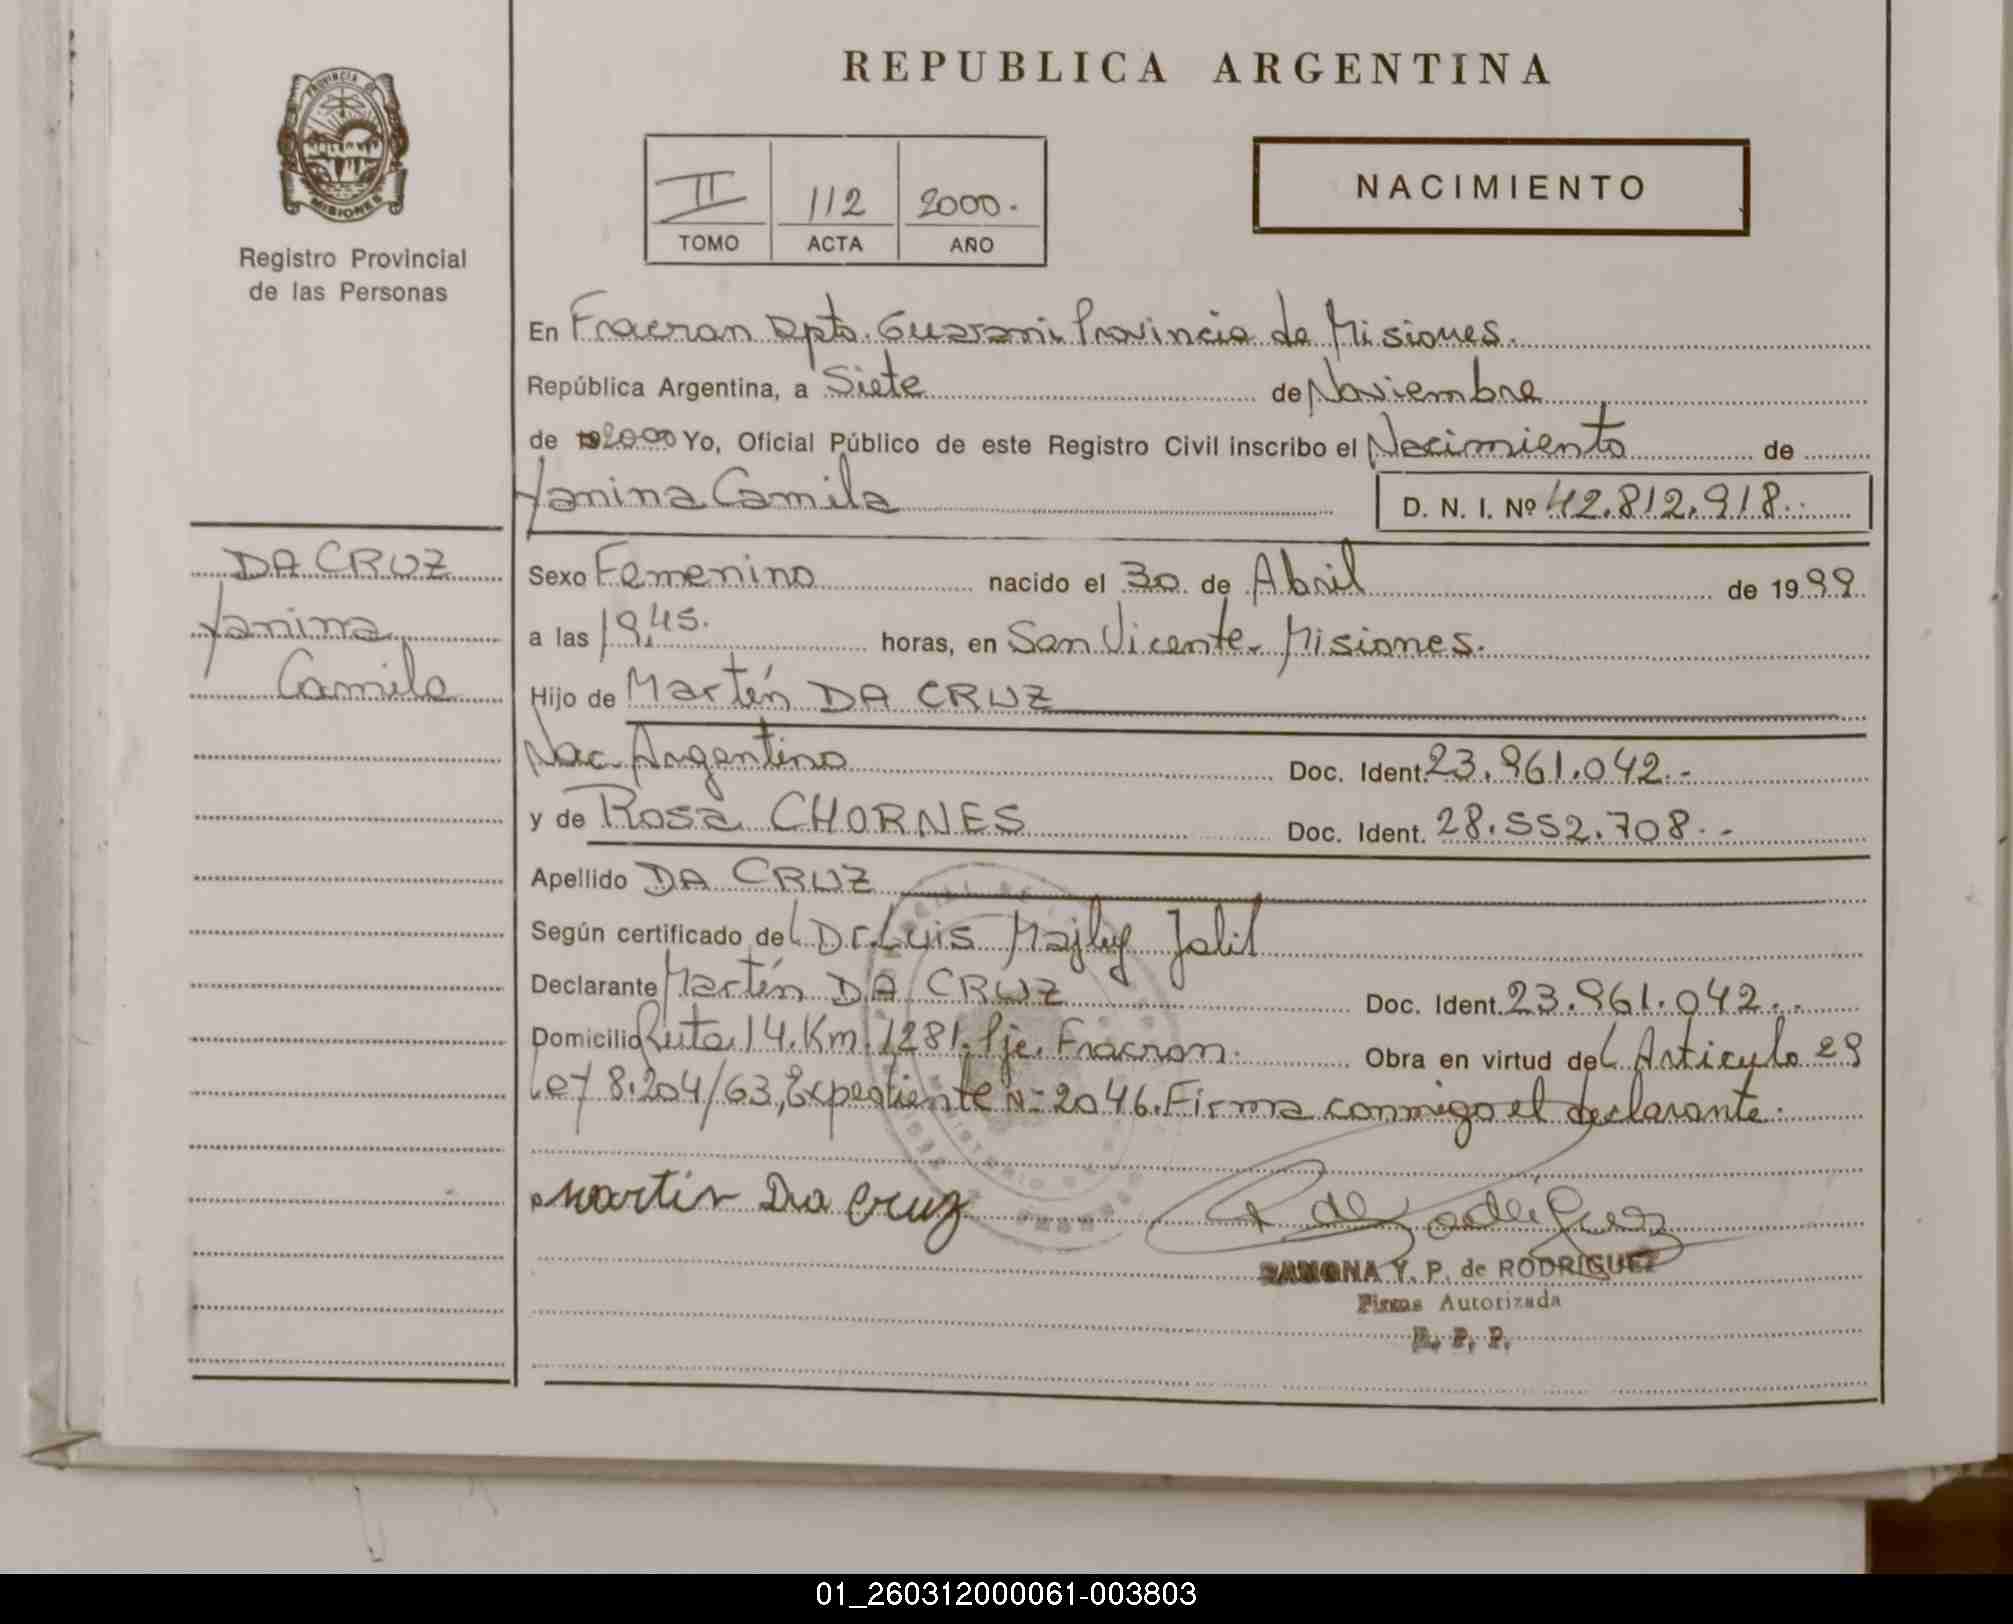 REPUBLICA ARGENTINA
PROVINCIA DE
MISIONES
Registro Provincial
de las Personas
II 112 2000.
TOMO ACTA AÑO
NACIMIENTO
En Fracran Dpto. Guarani Provincia de Misiones.
República Argentina, a Siete de Noviembre
de 2000 Yo, Oficial Público de este Registro Civil inscribo el Nacimiento de
Yanina Camila D. N. I. Nº 42.812.918.-
DA CRUZ
Yanina
Camila
Sexo Femenino nacido el 30 de Abril de 1999
a las 19,45. horas, en San Vicente - Misiones.
Hijo de Martín DA CRUZ
Nac. Argentino Doc. Ident. 23.961.042.-
y de Rosa CHORNES Doc. Ident. 28.552.708.-
Apellido DA CRUZ
Según certificado del Dr. Luis Jalil
Declarante Martín DA CRUZ Doc. Ident. 23.961.042.-
Domicilio Ruta 14. Km. 1281. Pje. Fracron. Obra en virtud del Articulo 29
Ley 8.204/63, Expediente Nº 2046. Firma conmigo el declarante.
Martin Da Cruz
R de Rodriguez
RAMONA Y. P. de RODRIGUEZ
Firma Autorizada
R. P. P.
01_260312000061-003803